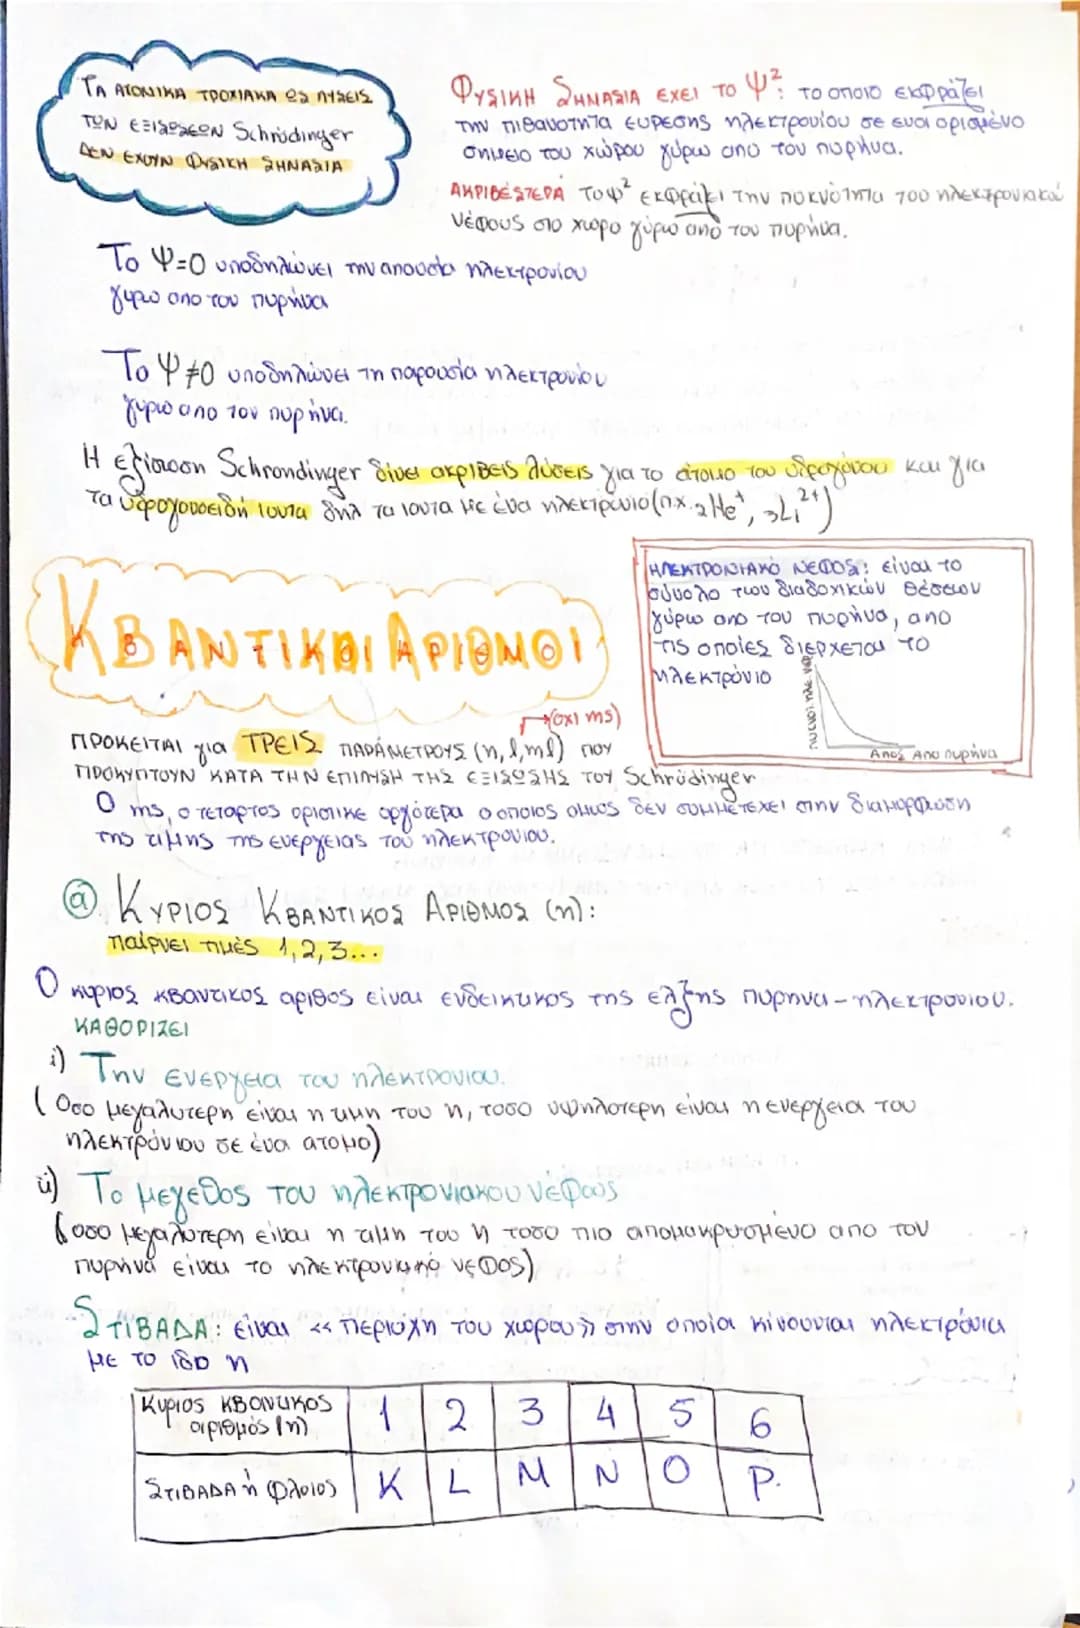 ΤΑ ΑΤΟΜΙΚΑ ΤΡΟΧΙΑΚΑ ΩΣ ΛΥΣΕΙΣ
ΤΩΝ ΕΞΙΣΩΣΕΩΝ Schrödinger
ΔΕΝ ΕΧΟΥΝ ΦΥΣΙΚΗ ΣΗΜΑΣΙΑ
ΦΥΣΙΚΗ ΣΗΜΑΣΙΑ ΕΧΕΙ ΤΟ Ψ²: το οποιο εκφράζει
την πιθανοτητα ευρεσης ηλεκτρονίου σε ενα ορισμένο
σημειο του χώρου γύρω απο τον πυρήνα.
ΑΚΡΙΒΕΣΤΕΡΑ Το ψ² εκφράζει την πυκνότητα του ηλεκτρονιακού
νέφους στο χωρο γύρω από τον πυρήνα.
Το Ψ=0 υποδηλώνει την απουσία ηλεκτρονίου
γυρω απο τον πυρήνα
Το Ψ≠0 υποδηλώνει τη παρουσία ηλεκτρονίου
γυρω απο τον πυρήνα.
Η εξίσωση Schrondinger δίνει ακριβείς λύσεις για το άτομο του υδρογόνου και για
τα υδρογονοειδή ιοντα δηλ τα ιοντα με ένα ηλεκτρόνιο (π.χ. ₂He⁺, ₃Li²⁺)
ΗΛΕΚΤΡΟΝΙΑΚΟ ΝΕΦΟΣ: είναι το
σύνολο των διαδοχικών θέσεων
γύρω απο τον πυρήνα, απο
τις οποίες διέρχεται το
ηλεκτρόνιο
Αποσ Απο πυρήνα
ΚΒΑΝΤΙΚΟΙ ΑΡΙΘΜΟΙ
(οχι ms)
ΠΡΟΚΕΙΤΑΙ για ΤΡΕΙΣ ΠΑΡΑΜΕΤΡΟΥΣ (n, l, ml) ΠΟΥ
ΠΡΟΚΥΠΤΟΥΝ ΚΑΤΑ ΤΗΝ ΕΠΙΛΥΣΗ ΤΗΣ ΕΞΙΣΩΣΗΣ ΤΟΥ Schrödinger
Ο ms, ο τεταρτος οριστικε αργότερα ο οποιος ομως δεν συμμετεχει στην διαμορφωση
της τιμης της ενεργειας του ηλεκτρονιου.
α) ΚΥΡΙΟΣ ΚΒΑΝΤΙΚΟΣ ΑΡΙΘΜΟΣ (n):
παίρνει τιμές 1,2,3...
Ο κυριος κβαντικος αριθος είναι ενδεικτικος της ελξης πυρηνα - ηλεκτρονιου.
ΚΑΘΟΡΙΖΕΙ
i) Την ενεργεια του ηλεκτρονιου.
(Οσο μεγαλυτερη είναι η τιμη του n, τοσο υψηλοτερη είναι η ενεργεια του
ηλεκτρόνιου σε ένα ατομο)
ii) Το μεγεθος του ηλεκτρονιακου νέφους
(οσο μεγαλυτερη είναι η τιμη του n τοσο πιο απομακρυσμένο απο τον
πυρήνα είναι το ηλεκτρονιακό νεφος)
ΣΤΙΒΑΔΑ: είναι << περιοχη του χωρου>> στην οποία κινουνται ηλεκτρόνια
με το ιδο n
Κυριος κβαντικος αριθμός (n) 1 2 3 4 5 6
ΣΤΙΒΑΔΑ ή Φλοιος K L M N O P.